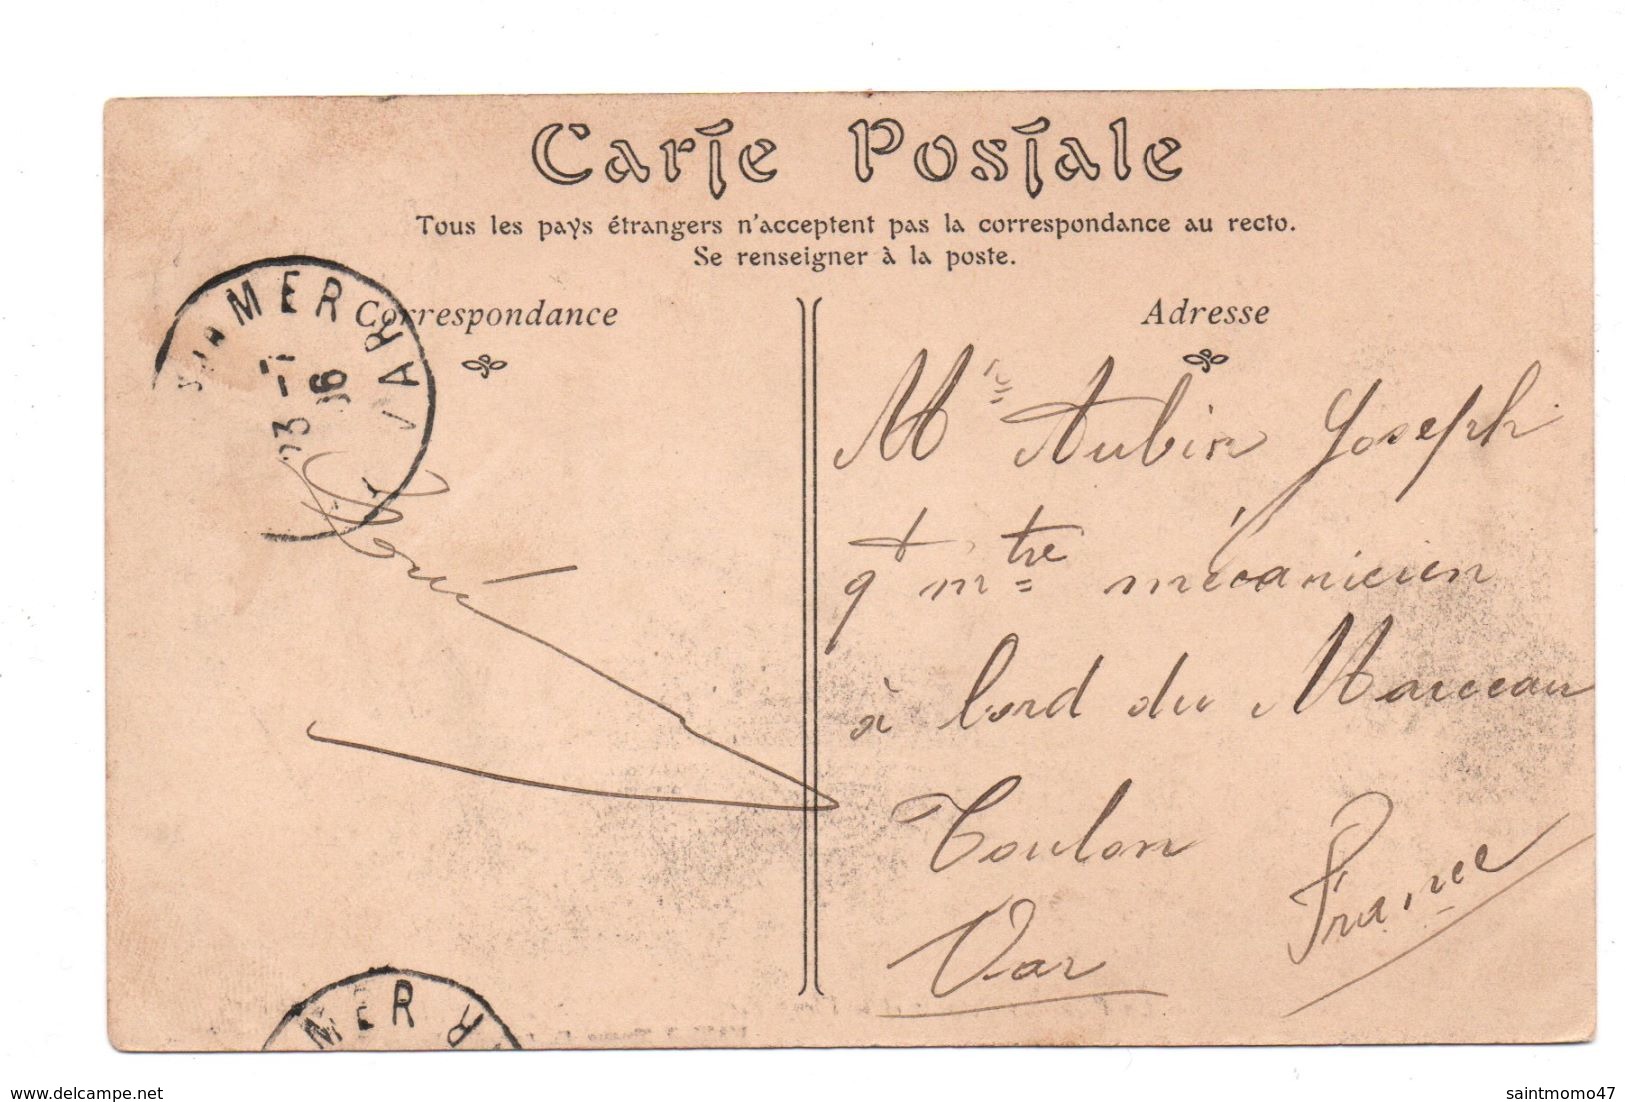 Carte Postale
Tous les pays étrangers n'acceptent pas la correspondance au recto.
Se renseigner à la poste.
Correspondance
Adresse
MER VAR
23 -7
06
Mr Aubin Joseph
qt mtre mécanicien
à bord du Marceau
Toulon
Var
France
MER
delcampe.net
saintmomo47